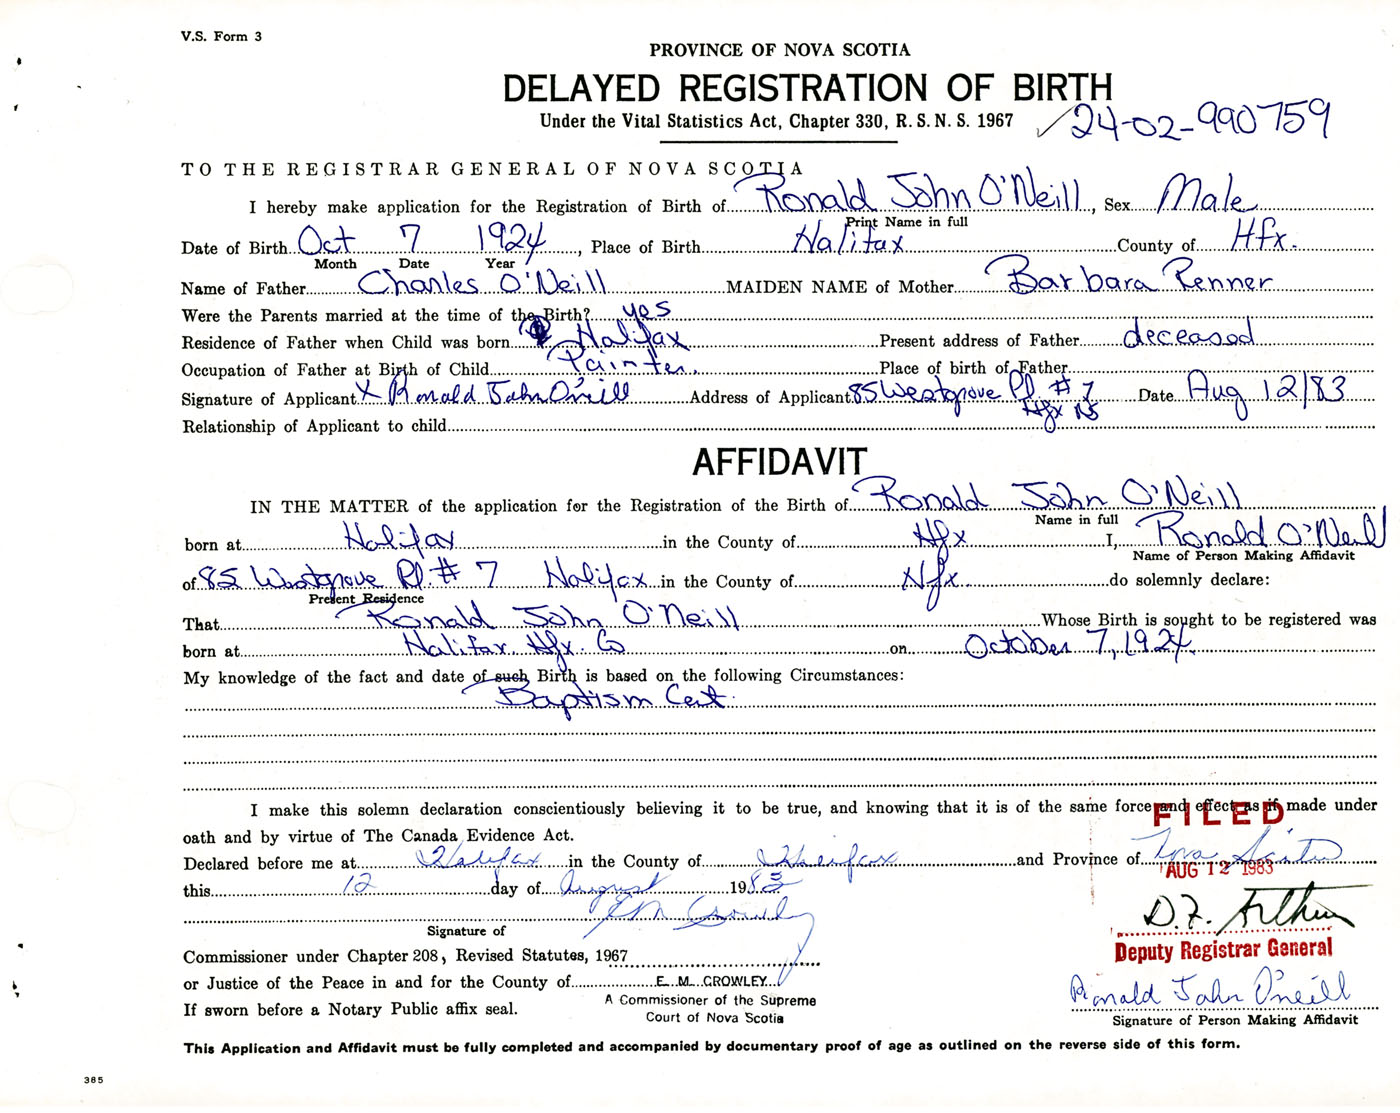 V.S. Form 3
PROVINCE OF NOVA SCOTIA
DELAYED REGISTRATION OF BIRTH
Under the Vital Statistics Act, Chapter 330, R.S.N.S. 1967
24-02-990759
TO THE REGISTRAR GENERAL OF NOVA SCOTIA
I hereby make application for the Registration of Birth of Ronald John O'Neill, Sex Male
Print Name in full
Date of Birth Oct 7 1924, Place of Birth Halifax County of Hfx.
Month Date Year
Name of Father Charles O'Neill MAIDEN NAME of Mother Barbara Renner
Were the Parents married at the time of the Birth? yes
Residence of Father when Child was born Halifax Present address of Father deceased
Occupation of Father at Birth of Child Painter. Place of birth of Father
Signature of Applicant X Ronald John O'neill Address of Applicant 85 Westgrove Pl # 7 Date Aug 12/83
Hfx NS
Relationship of Applicant to child
AFFIDAVIT
IN THE MATTER of the application for the Registration of the Birth of Ronald John O'Neill
Name in full
born at Halifax in the County of Hfx I, Ronald O'Neill
Name of Person Making Affidavit
of 85 Westgrove Pl # 7 Halifax in the County of Hfx do solemnly declare:
Present Residence
That Ronald John O'Neill Whose Birth is sought to be registered was
born at Halifax Hfx. Co on October 7, 1924.
My knowledge of the fact and date of such Birth is based on the following Circumstances:
Baptism Cert.
I make this solemn declaration conscientiously believing it to be true, and knowing that it is of the same force and effect as if made under
FILED
oath and by virtue of The Canada Evidence Act.
Declared before me at Halifax in the County of Halifax and Province of Nova Scotia
AUG 12 1983
this 12 day of August 1983
E M Crowley
D.F. Arthur
Signature of
Deputy Registrar General
Commissioner under Chapter 208, Revised Statutes, 1967
or Justice of the Peace in and for the County of E. M. CROWLEY
Ronald John O'neill
A Commissioner of the Supreme
If sworn before a Notary Public affix seal.
Court of Nova Scotia
Signature of Person Making Affidavit
This Application and Affidavit must be fully completed and accompanied by documentary proof of age as outlined on the reverse side of this form.
385